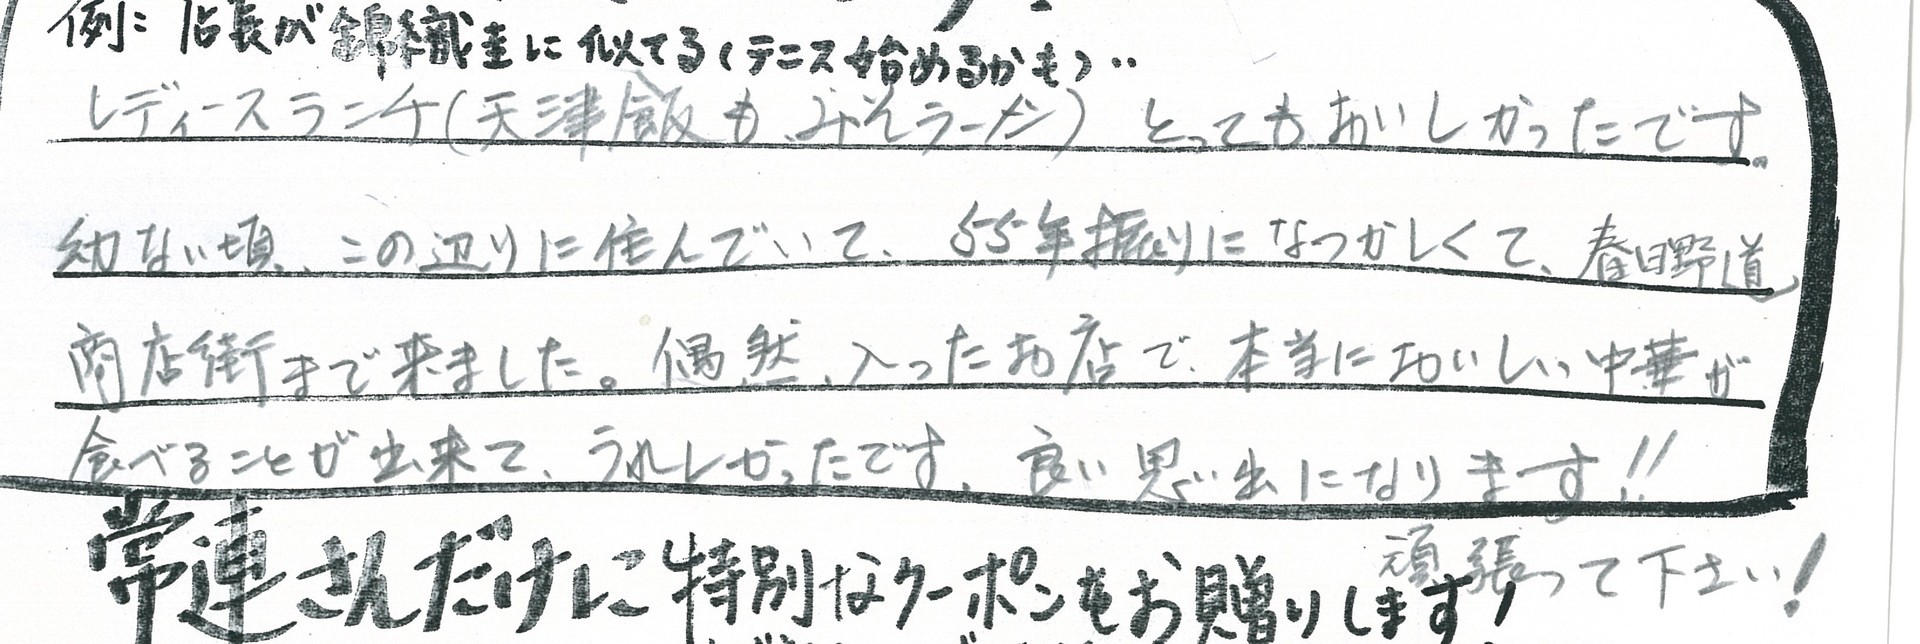 例:店長が錦織圭に似てる(テニス始めるかも)‥
レディースランチ(天津飯も、みそラーメン) とってもおいしかったです。
幼ない頃、この辺りに住んでいて、55年振りになつかしくて、春日野道
商店街まで来ました。偶然、入ったお店で、本当においしい中華が
食べることが出来て、うれしかったです。良い思い出になります!!
頑張って下さい!
常連さんだけに特別なクーポンもお贈りします!